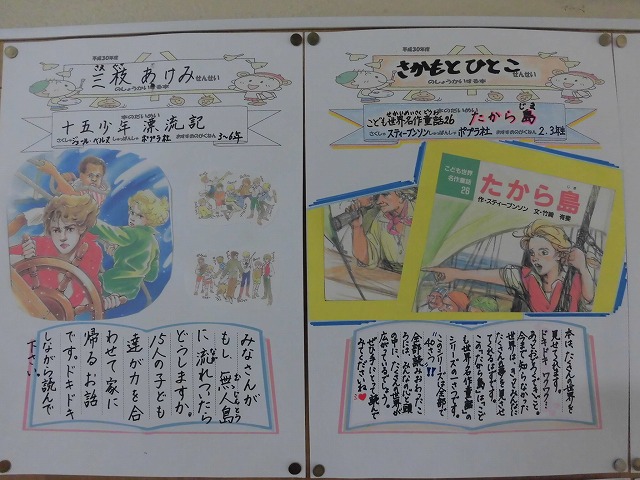 平成30年度
さえぐさ
三枝 あけみ せんせい
のしょうかいする本
本のだいめい
十五少年漂流記
さくしゃ ジュール・ベルヌ しゅっぱんしゃ ポプラ社 おすすめのがくねん 3~6年
みなさんが
もし、無人島
むじんとう
に流れついたら
なが
どうしますか。
15人の子ども
達が力を合
わせて家に
帰るお話
です。ドキドキ
しながら読んで
下さい。
平成30年度
さかもと ひとこ せんせい
のしょうかいする本
せかいめいさくどうわ 本のだいめい じま
こども世界名作童話26 たから島
さくしゃ スティーブンソン しゅっぱんしゃ ポプラ社 おすすめのがくねん 2.3年生
こども世界
名作童話
26
たから島
じま
作・スティーブンソン 文・竹崎 有斐
本は、たくさんの世界を
見せてくれます。
ドキドキ、ワクワク…
今まで知らなかった
世界は、きっとみんなに
たくさんの夢を見させ
てくれるはずです。
この「たから島」は、「こど
も世界名作童話」の
シリーズの一さつです。
このシリーズは全部で
"40さつ"!!
全部読みおわったこ
の中に、たくさんの世界が
広がっているでしょう。
ぜひ手にとって読んで
みてくださいね